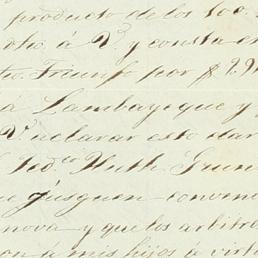 producto de los 100.
otro á V. y consta en
tro. Triunfo por $
á Lambayeque y
V. aclarar esto dar
Fed.co Huth Grun
ue jusguen conven
nova y que los arbitro
on á mis hijos á virtu